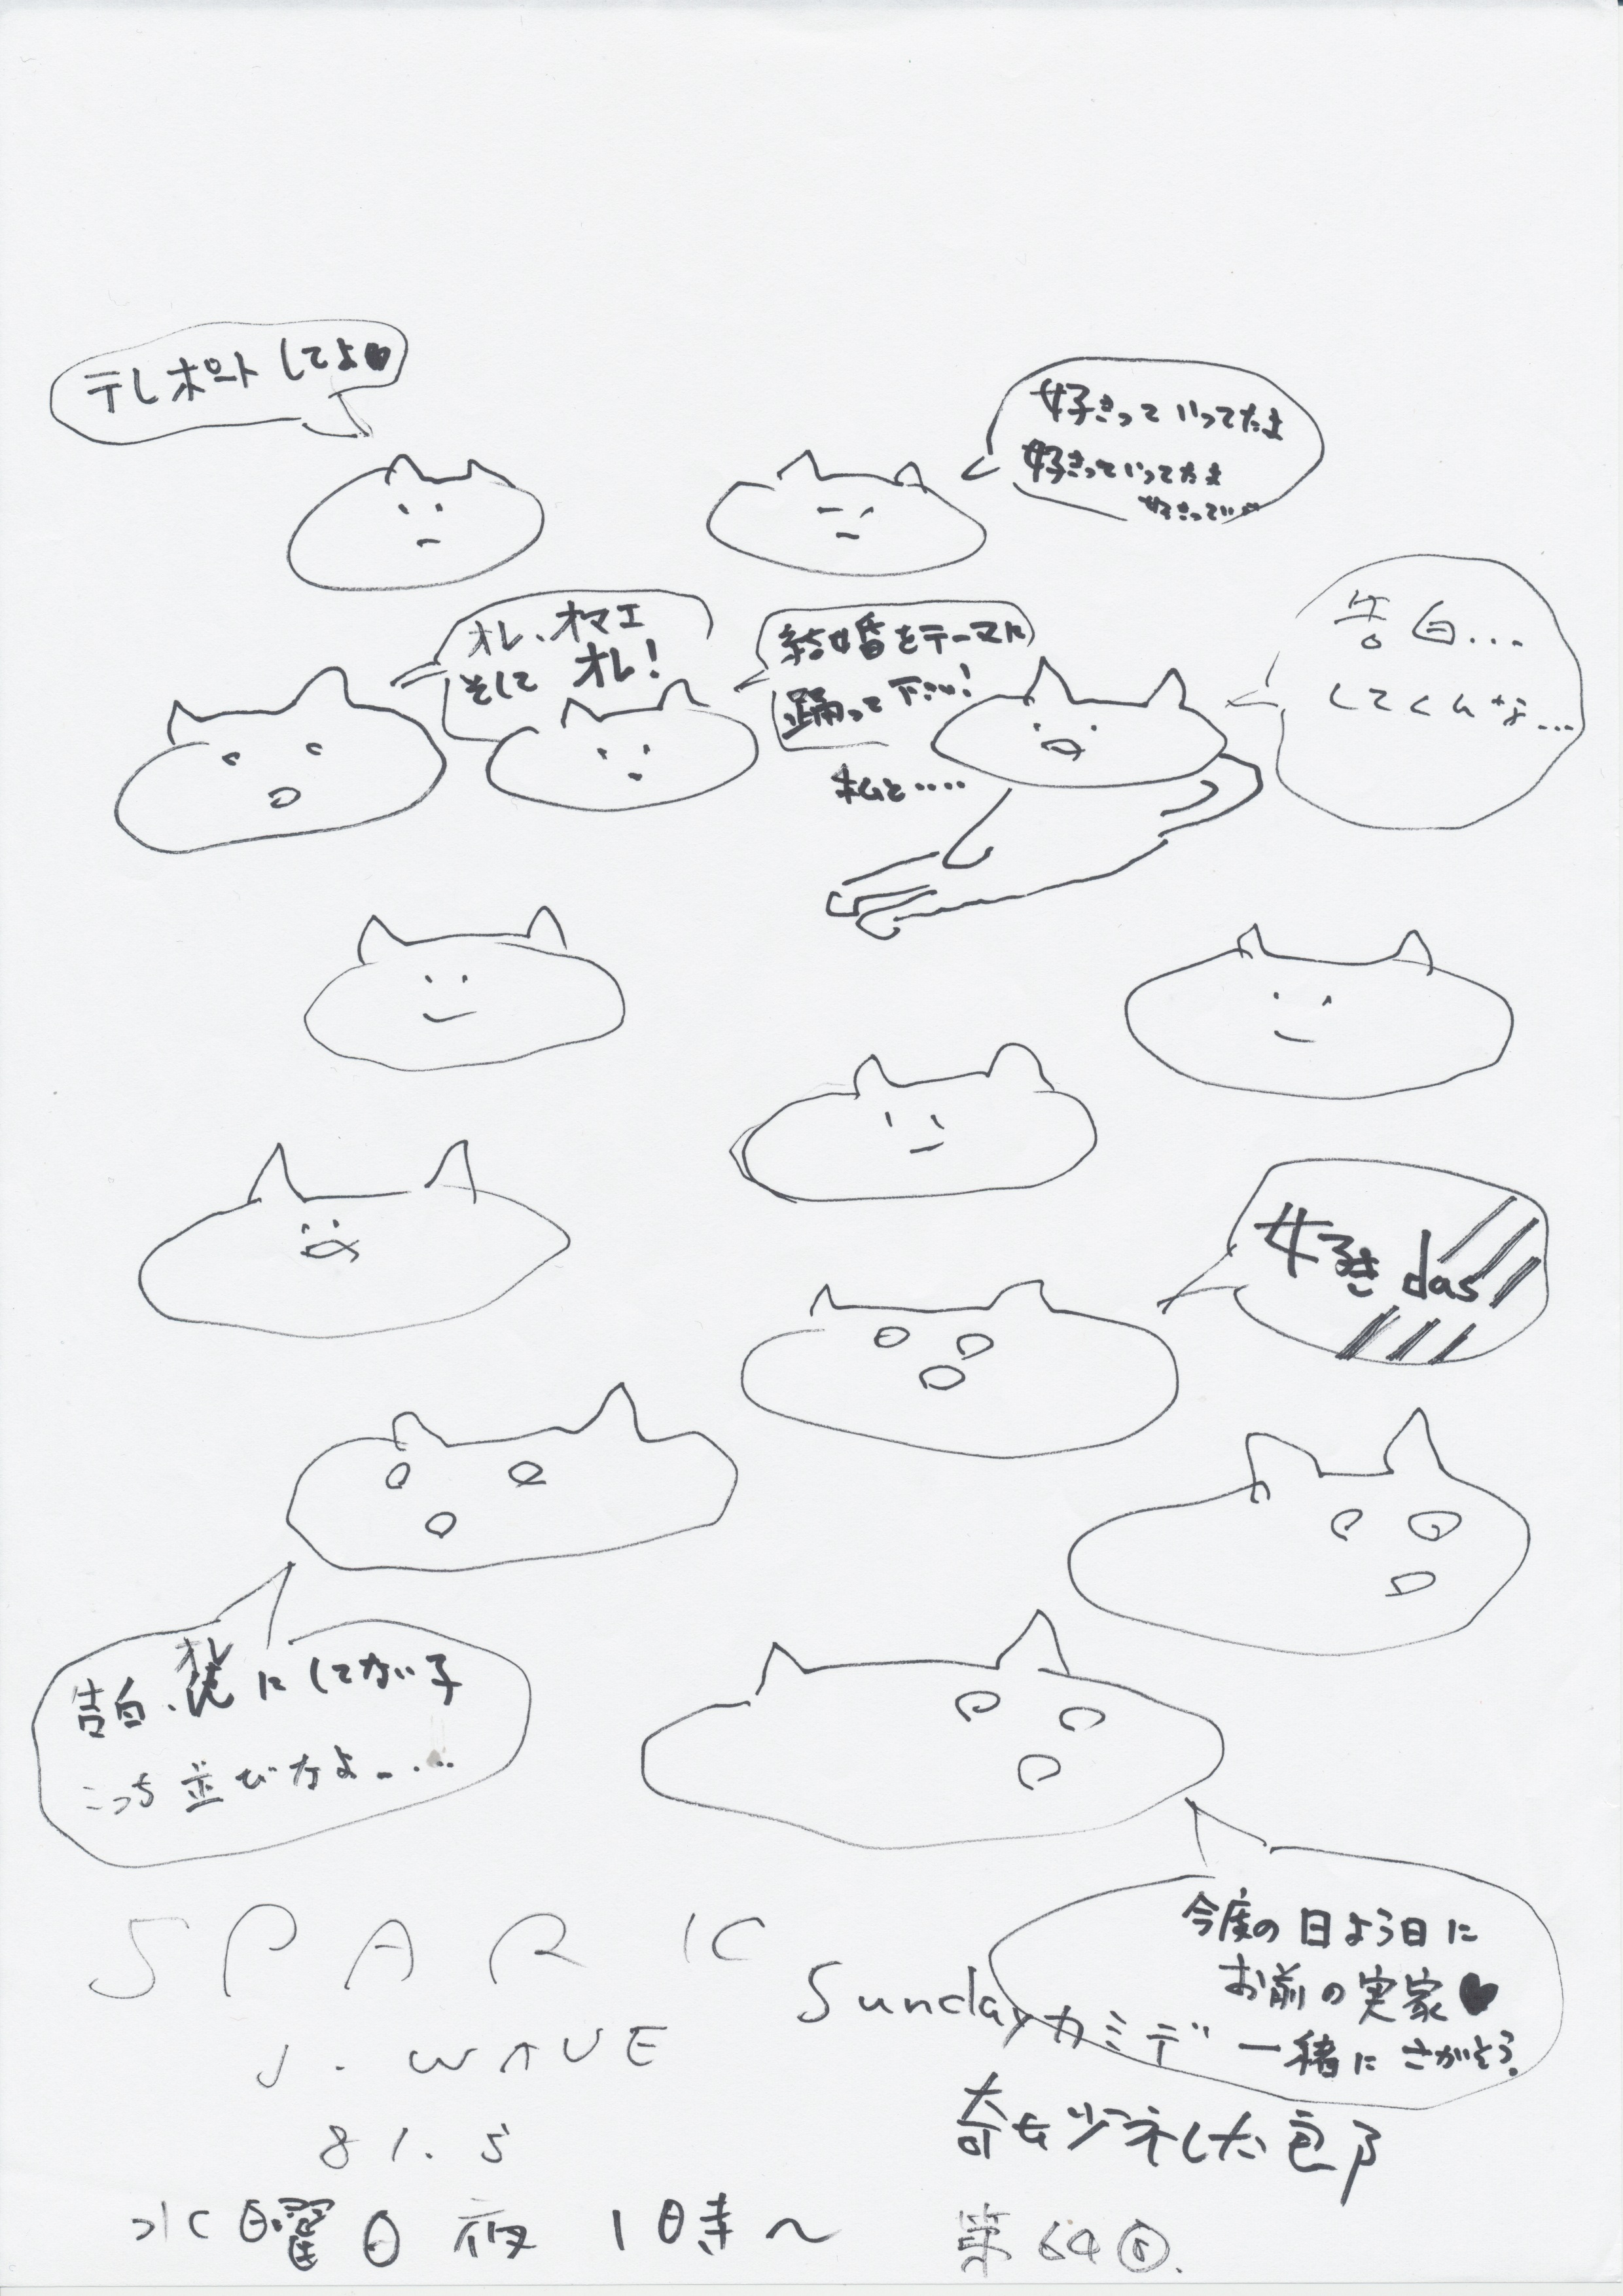 テレポートしてよ♥
好きっていってたよ
好きっていってたよ
好きって
オレ、オマエ
そして オレ!
結婚をテーマに
踊って下さい!
私と‥‥
告白...
してくんな...
好きdas
告白、俺にしてない子
オレ
こっち並びなよー...
今度の日よう日に
お前の実家♥
一緒にさがそう。
SPARK
J-WAVE
81.5
水曜日夜1時〜
Sundayカミデ
奇妙礼太郎
第64回.